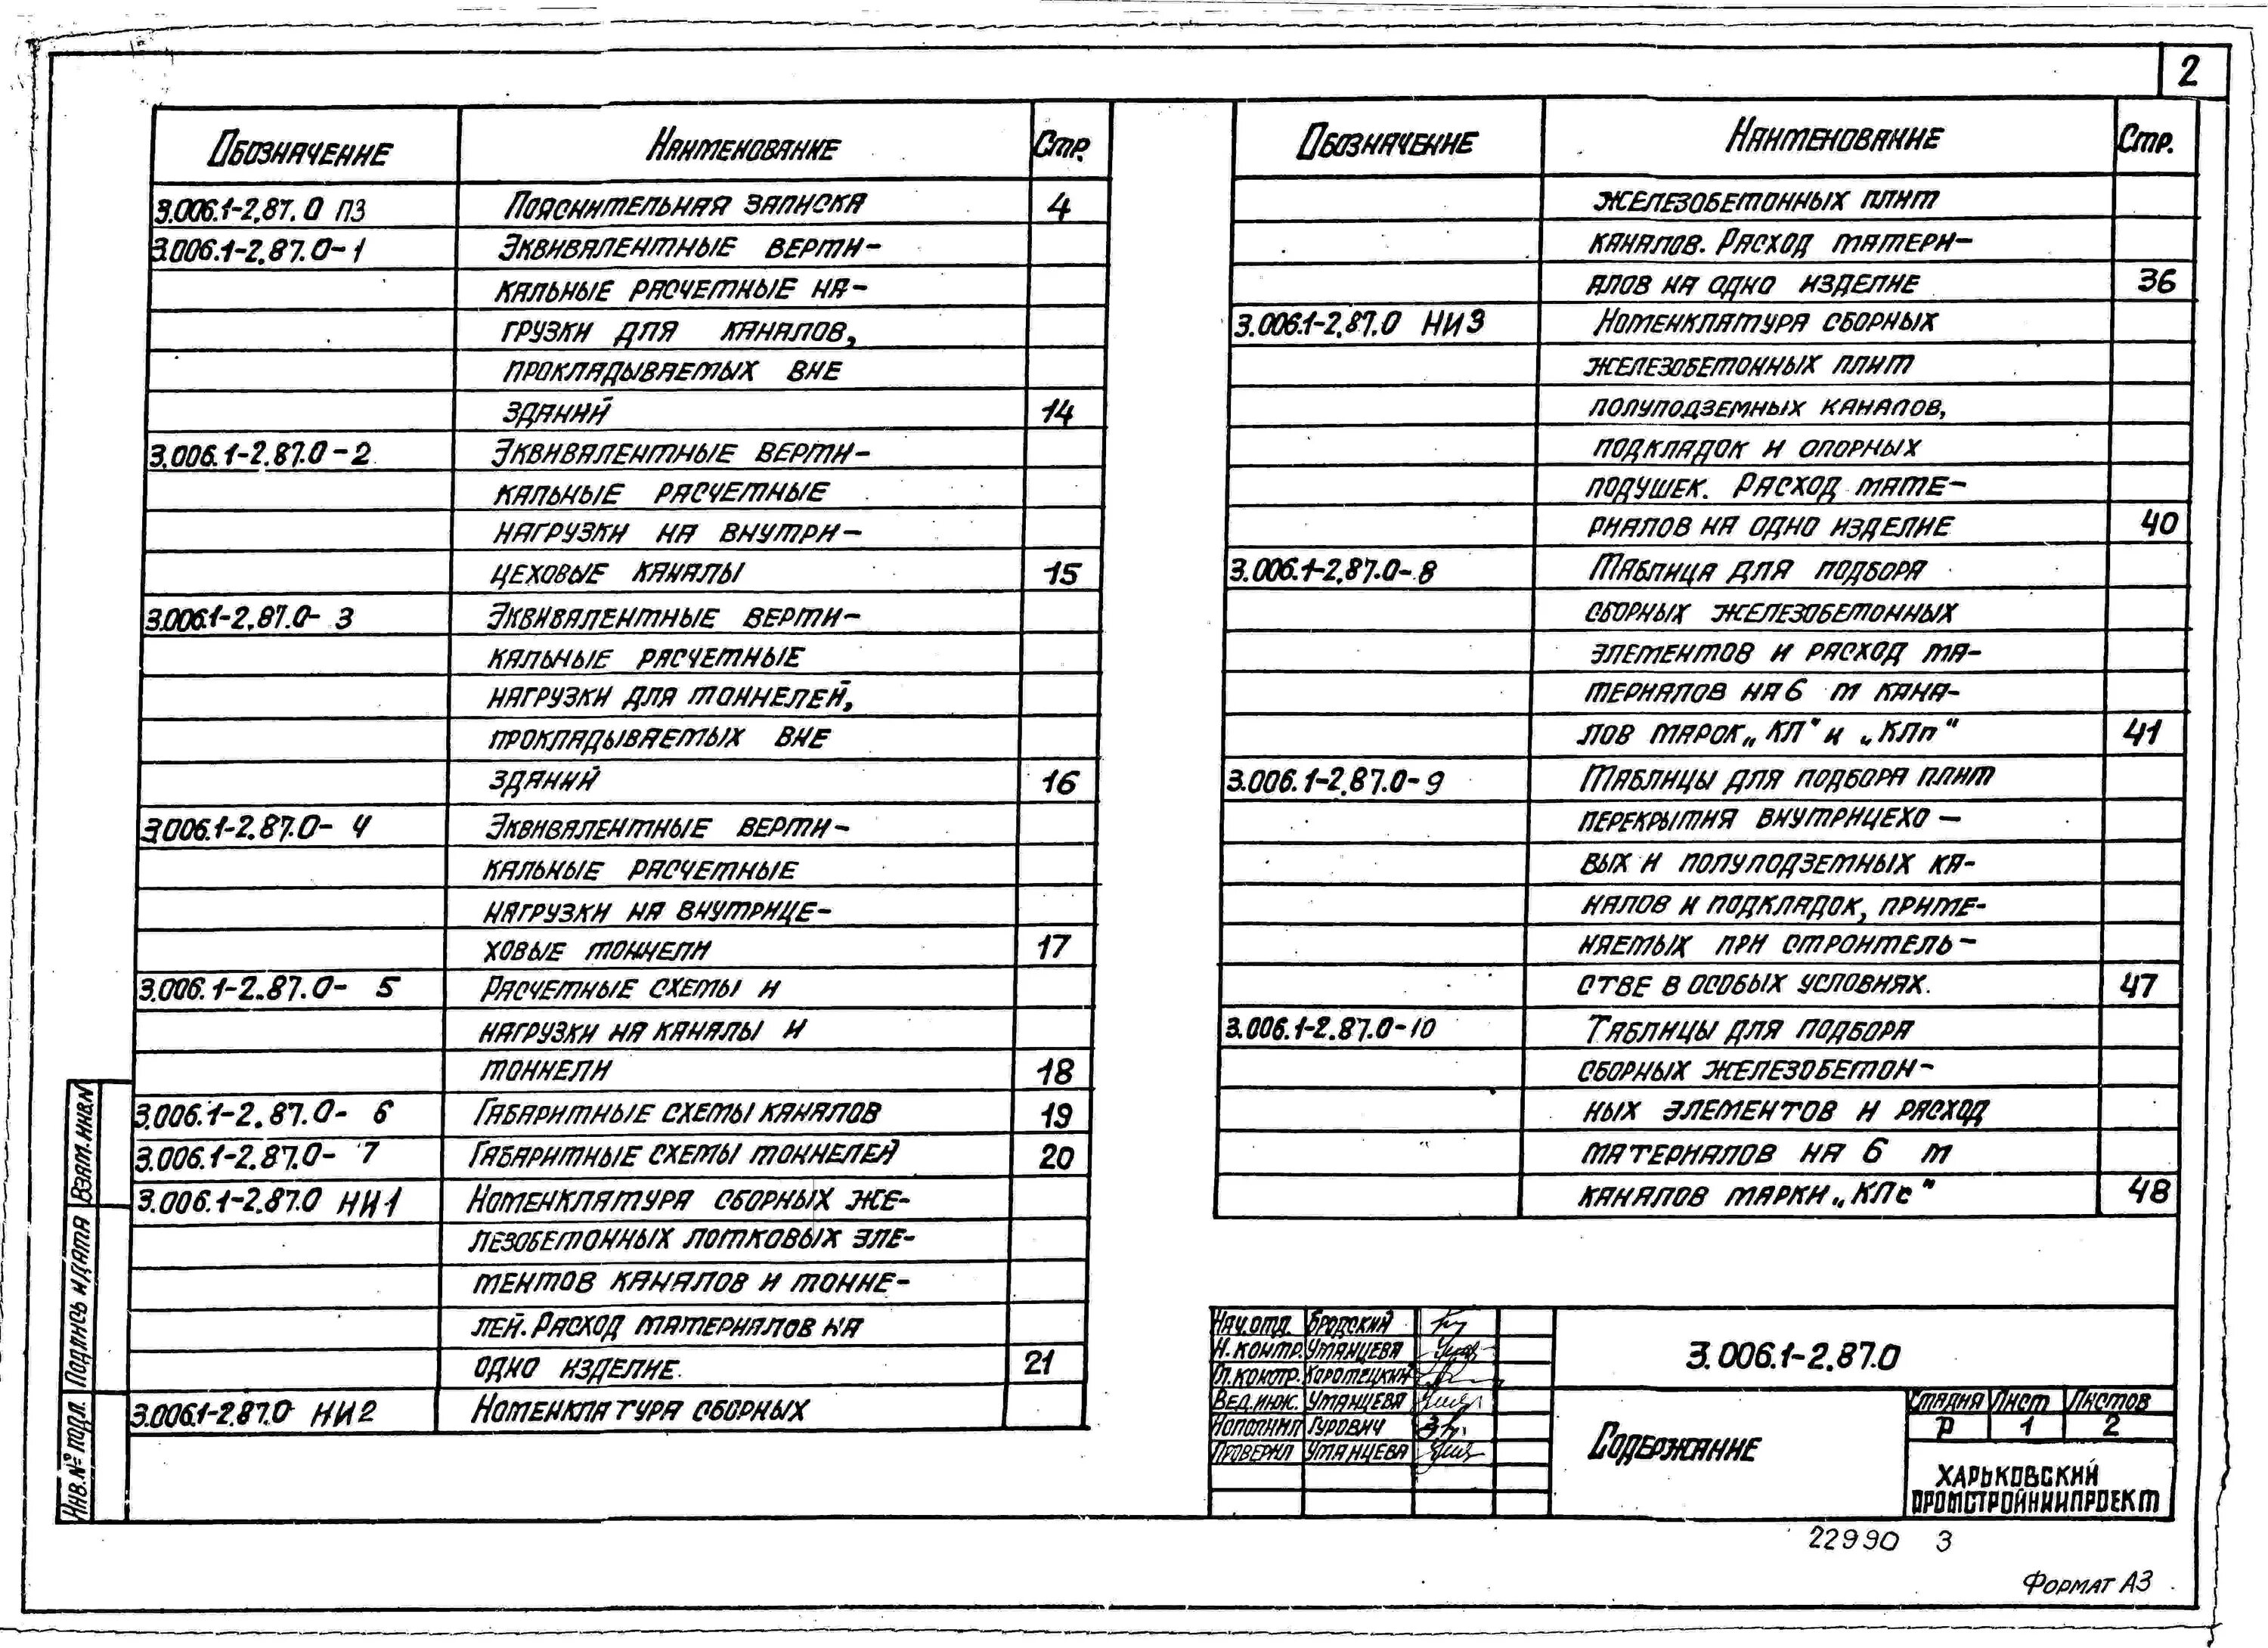 2
Обозначение Наименование Стр.
3.006.1-2.87.0 ПЗ Пояснительная записка 4
3.006.1-2.87.0-1 Эквивалентные верти-
кальные расчетные на-
грузки для каналов,
прокладываемых вне
зданий 14
3.006.1-2.87.0-2 Эквивалентные верти-
кальные расчетные
нагрузки на внутри-
цеховые каналы 15
3.006.1-2.87.0-3 Эквивалентные верти-
кальные расчетные
нагрузки для тоннелей,
прокладываемых вне
зданий 16
3.006.1-2.87.0-4 Эквивалентные верти-
кальные расчетные
нагрузки на внутрице-
ховые тоннели 17
3.006.1-2.87.0-5 Расчетные схемы и
нагрузки на каналы и
тоннели 18
3.006.1-2.87.0-6 Габаритные схемы каналов 19
3.006.1-2.87.0-7 Габаритные схемы тоннелей 20
3.006.1-2.87.0 НИ1 Номенклатура сборных же-
лезобетонных лотковых эле-
ментов каналов и тонне-
лей. Расход материалов на
одно изделие. 21
3.006.1-2.87.0 НИ2 Номенклатура сборных
Обозначение Наименование Стр.
железобетонных плит
каналов. Расход матери-
алов на одно изделие 36
3.006.1-2.87.0 НИ3 Номенклатура сборных
железобетонных плит
полуподземных каналов,
подкладок и опорных
подушек. Расход мате-
риалов на одно изделие 40
3.006.1-2.87.0-8 Таблица для подбора
сборных железобетонных
элементов и расход ма-
териалов на 6 м кана-
лов марок „КЛ" и „КЛп" 41
3.006.1-2.87.0-9 Таблицы для подбора плит
перекрытия внутрицехо-
вых и полуподземных ка-
налов и подкладок, приме-
няемых при строитель-
стве в особых условиях. 47
3.006.1-2.87.0-10 Таблицы для подбора
сборных железобетон-
ных элементов и расход
материалов на 6 м
каналов марки „КЛс" 48
Нач.отд. Бродский
Н.контр. Уманцева
Гл.констр. Коротецкий
Вед.инж. Уманцева
Исполнил Гурович
Проверил Уманцева
3.006.1-2.87.0
Содержание
Стадия Лист Листов
Р 1 2
Харьковский
Промстройниипроект
Взам.инв.N
Подпись и дата
Инв.№ подл.
22990 3
Формат А3